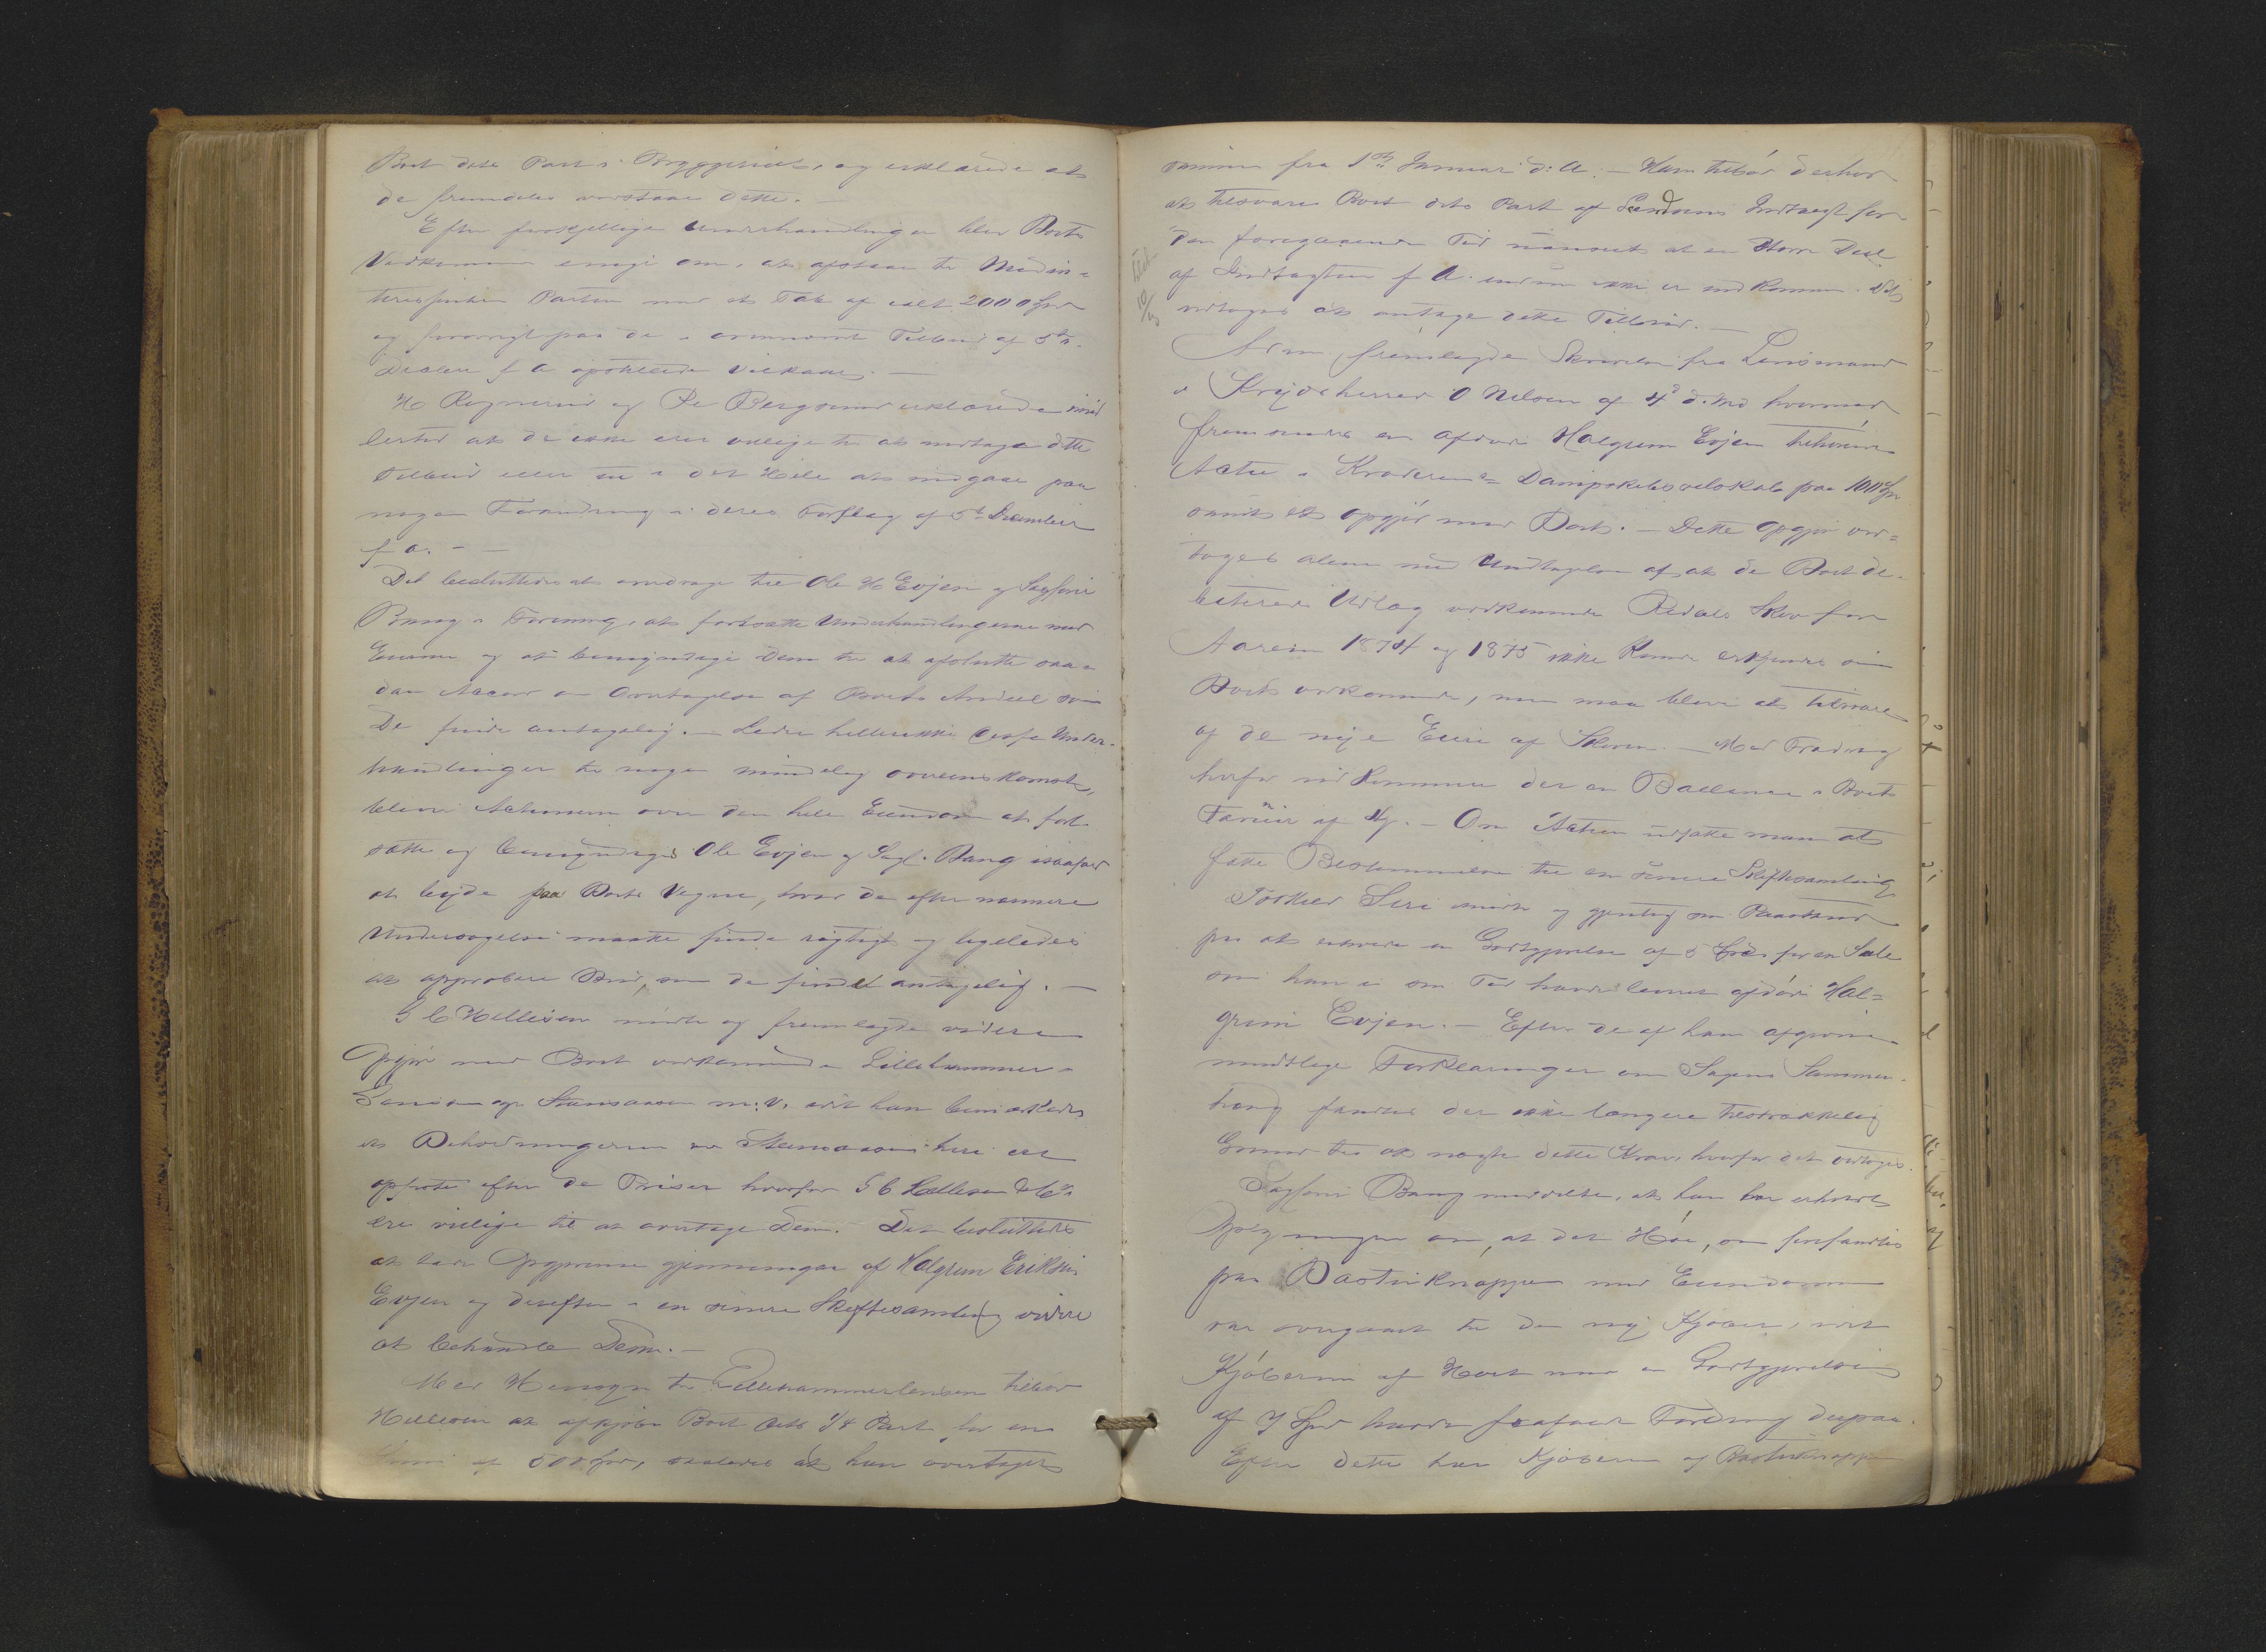 Boet dets Part i Bryggeriet, og erklærede at
de fremdeles vedstaae dette. —
Efter forskjellige Underhandlinger blev Boets
Vedkommende enige om, at afstaae til Medin-
teressenten Parten med et Tab af ialt 2000 Spd
og forøvrigt paa de i ovennævnte Tilbud af 5te
December f A opstillede Vilkaar. —
H Regnerud og Pe Bergsund erklærede imid
lertid at de ikke ere villige til at modtage dette
Tilbud eller til i det Hele at indgaae paa
nogen Forandring i deres Forslag af 5te December
f a. —
Det besluttedes at overdrage til Ole H Evjen og Sagfører
Bang i Forening, at fortsætte Underhandlingerne med
Eierne og at bemyndige dem til at afslutte saa-
dan Accord om Overtagelse af Boets Andeel som
De finde antagelig. — Leder hellerikke disse Under-
handlinger til nogen mindelig Overenskomst,
bliver Auctionen over den hele Eiendom at fort-
sætte og bemyndiges Ole Evjen og Sagf. Bang isaafald
at byde paa Boets Vegne, hvad de efter nærmere
Undersøgelse maatte finde rigtigt og ligeledes
at approbere Bud, som de finde antagelig. —
G C Hellesen mødte og fremlagde videre
Opgjør med Boet vedkommende Lillehammer-
Lensen og Stensaasen m: v. idet han bemærkede
at Beholdningerne ved Stensaasen her ere
opførte efter de Priser hvorfor G C Hellesen & Co
ere villige til at overtage dem. Det besluttedes
at lade Opgjørene gjennemgaae af Halgrim Eriksen
Evjen og derefter i en senere Skiftesamling videre
at behandle dem. —
Med Hensyn til Lillehammerlensen tilbød
Hellesen at afkjøbe Boet dets 1/4 Part for en
Sum af 500 Spd, saaledes at han overtager
samme fra 1ste Januar d: A: — Han tilbød derhos
at tilsvare Boet dets Part af Lendsens Indtægt for
den foregaaende Tid uanseet at en Større Deel
af Indtægten f A. endnu ikke er indkommen. Det
vedtoges at antage dette Tilbud. —
Adm. fremlagde Skrivelse fra Lensmand
i Krydsherred O Nelsen af 4d d. Md hvormed
fremsendes en afdøde Halgrim Evjen tilhørende
Actie i Krøderens Dampskibsselskab paa 100 Spd
samt et Opgjør med Boet. — Dette Opgjør ved-
toges alene med Undtagelse af, at de Boet de-
biterede Udlæg vedkommende Skov for
Aarene 1874 og 1875 ikke kunde erkjendes som
Boets vedkommende, men maa blive at tilsvare
af de nye Eiere af Skoven. — Med Fradrag
herfor udkommer der en Ballance i Boets
Faveur af — Om Actien udsatte man at
fatte Bestemmelse til en senere Skiftesamling
mødte og gjentog sin Paastand
paa at erholde en Godtgjørelse af 5 Spd for en Sæle
som han i sin Tid havde leveret afdøde Hal-
grim Evjen. — Efter de af ham afgivne
mundtlige Forklaringer om Sagens Sammen-
hæng fandtes der ikke længere tilstrækkelig
Grund til at nægte dette Krav, hvorfor det vedtoges.
Sagfører Bang meddelte, at han har erholdt
Oplysninger om, at det Høe, som forefandtes
paa Bastuknappen med Eiendommen
var overgaaet til den ny Kjøber, idet
Kjøberen af Høet mod en Godtgjørelse
af 7 Spd havde frafaldt Fordring derpaa.
Efter dette har Kjøberen af Bastuknappen